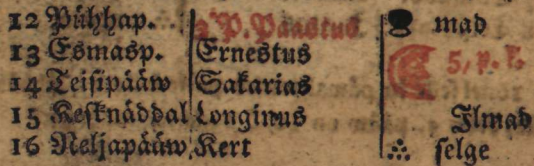 12 Pühhap. 2 P. Paastus mad
13 Esmasp. Ernestus 5, p. k.
14 Teisipääw Sakarias
15 Kesknäddal Longinus Ilmad
16 Neljapääw Kert selge